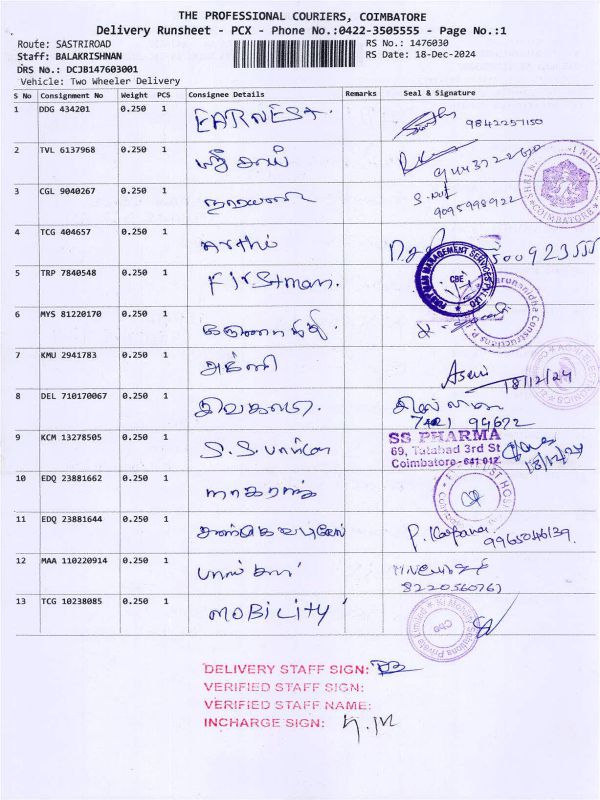 THE PROFESSIONAL COURIERS, COIMBATORE
Delivery Runsheet - PCX - Phone No.:0422-3505555 - Page No.:1
Route: SASTRIROAD
RS No.: 1476030
Staff: BALAKRISHNAN
RS Date: 18-Dec-2024
DRS No.: DCJB147603001
Vehicle: Two Wheeler Delivery
S No Consignment No Weight PCS Consignee Details Remarks Seal & Signature
1 DDG 434201 0.250 1 EARNEST. 9842257150
2 TVL 6137968 0.250 1 ஸ்ரீ சாய்
3 CGL 9040267 0.250 1 9095998922
COIMBATORE
4 TCG 404657 0.250 1 Arthi
5 TRP 7840548 0.250 1 Firstman.
FIRST MAN MANAGEMENT SERVICES PVT LTD
CBE
6 MYS 81220170 0.250 1 கருணாநிதி.
Karunanidha Constructions
7 KMU 2941783 0.250 1 அக்னி 18/12/24
8 DEL 710170067 0.250 1 சிவகாமி.
9 KCM 13278505 0.250 1 S.S. பார்மா
SS PHARMA
69, Tatabad 3rd St
Coimbatore-641 012.
18/12/24
10 EDQ 23881662 0.250 1 நாகராஜ்
11 EDQ 23881644 0.250 1 சண்முகவடிவேல் P. Kalpana 9965046139.
12 MAA 110220914 0.250 1
8220560761
13 TCG 10238085 0.250 1 MOBILITY
Mobility Solutions Private Limited
Cbe
DELIVERY STAFF SIGN:
VERIFIED STAFF SIGN:
VERIFIED STAFF NAME:
INCHARGE SIGN: